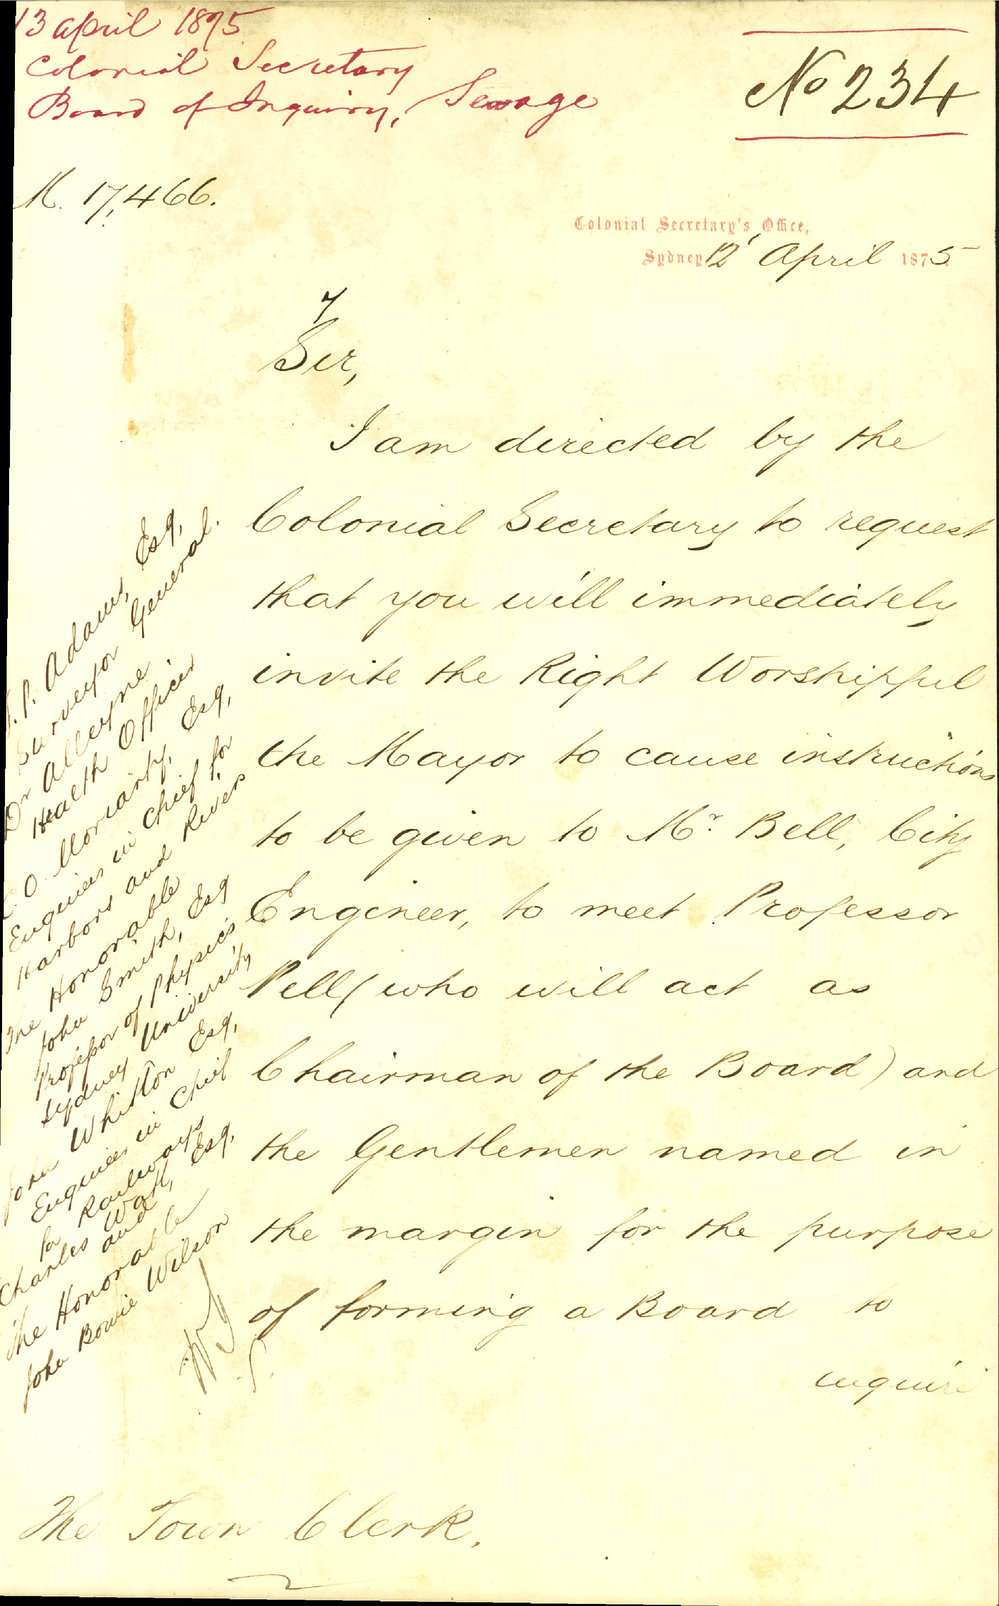 13 april 1875
Colonial Secretary
Board of Inquiry, Sewage
No 234
M. 17,466.
Colonial Secretary's Office,
Sydney 12 April 1875
Sir,
I am directed by the
Colonial Secretary to request
that you will immediately
invite the Right Worshipful
the Mayor to cause instructions
to be given to Mr. Bell, City
Engineer, to meet Professor
Pell (who will act as
Chairman of the Board) and
the Gentlemen named in
the margin for the purpose
of forming a Board to
enquire
P. Adams, Esq,
Surveyor General.
Dr Alleyne
Health Officer
E. O. Moriarty, Esq,
Engineer in Chief for
Harbors and Rivers
The Honorable
John Smith, Esq
Professor of Physics
Sydney University,
John Whitton Esq,
Engineer in Chief
for Railways
Charles Watt, Esq,
and
The Honorable
John Bowie Wilson
The Town Clerk.